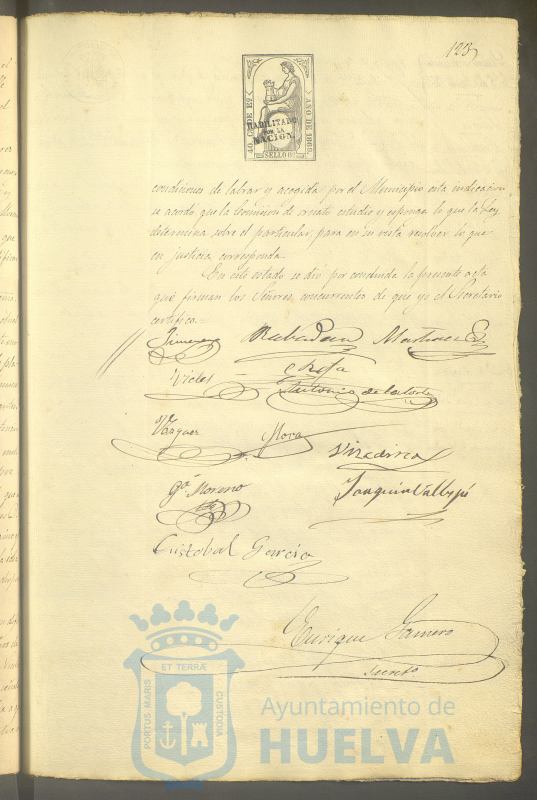 123
40. C. DE E.
AÑO DE 1869.
HABILITADO
POR LA
NACION.
SELLO 9
condiciones de labrar y acogida por el Municipio esta indicacion
se acordó que la Comision de ornato estudie y esponga lo que la Ley
determina sobre el particular, para en su vista resolver lo que
en justicia corresponda.
En este estado se dió por concluida la presente acta
que firman los Señores concurrentes de que yo el Secretario
certifico.=
Jimenez Rabadan Martinez
Vides
Antonio de la Corte
Vazquez Mora
Ga. Moreno Joaquin Vallejo
Cristobal Garcia
Enrique Gamero
Secreto
ET TERRÆ
PORTUS MARIS
CUSTODIA
Ayuntamiento de
HUELVA